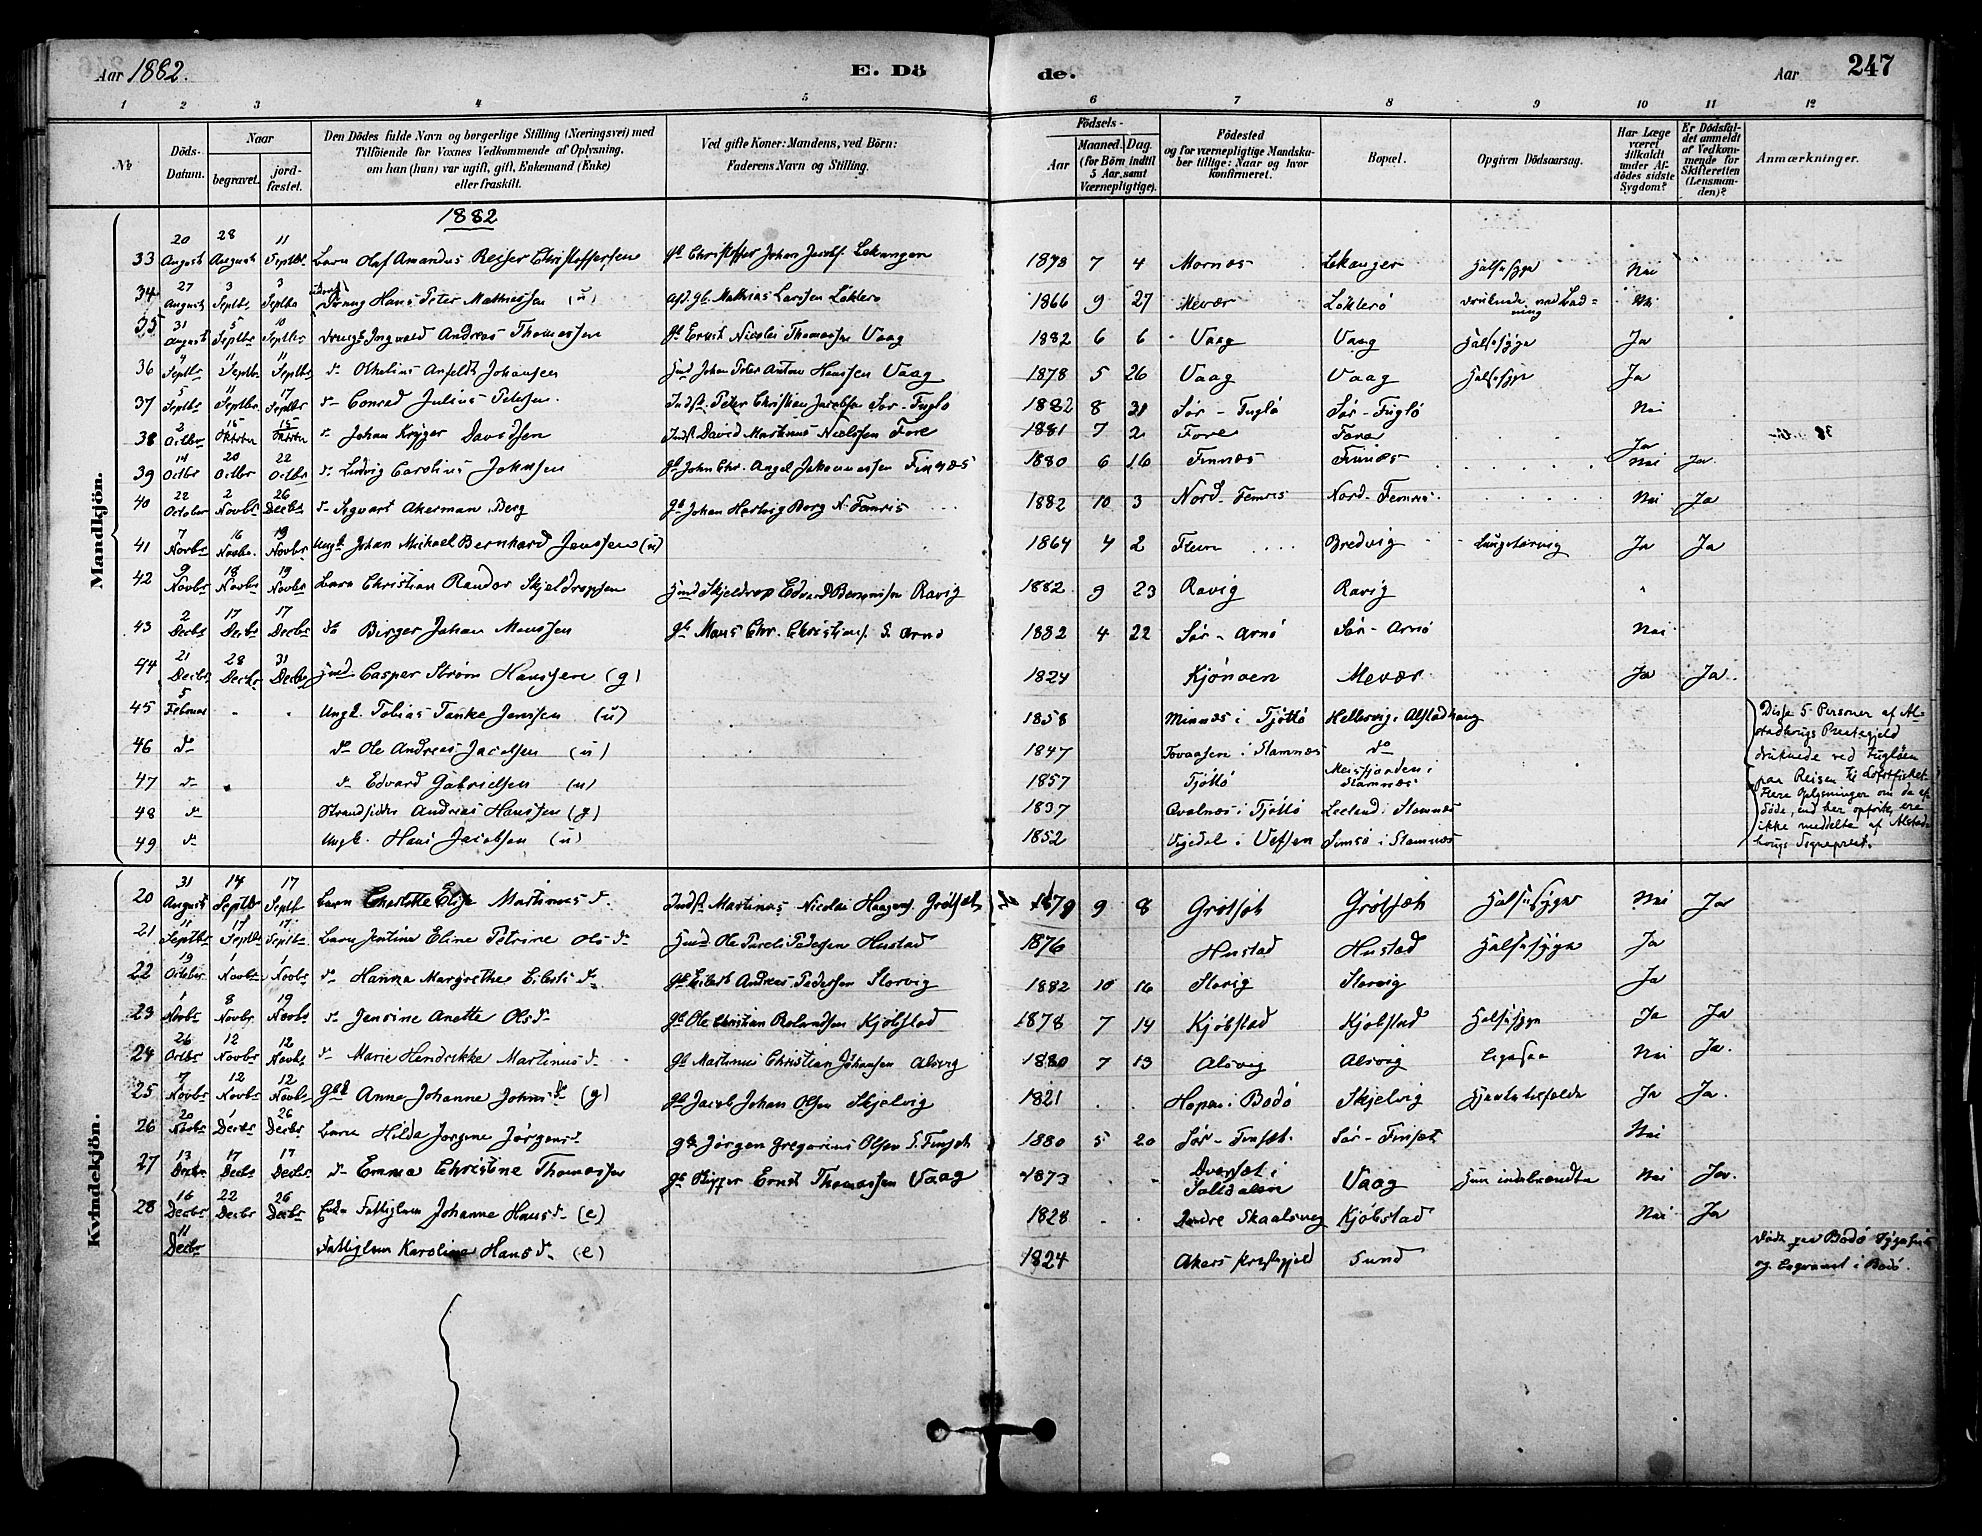 Aar 1882.
E. Dö
de.
Aar
247
1 2 3 4 5 6 7 8 9 10 11 12
№
Döds-
Datum.
Naar
begravet.
jord-
fæstet.
Den Dödes fulde Navn og borgerlige Stilling (Næringsvei) med
Tilföiende for Voxnes Vedkommende af Oplysning,
om han (hun) var ugift, gift, Enkemand (Enke)
eller fraskilt.
Ved gifte Koner: Mandens, ved Börn:
Faderens Navn og Stilling.
Födsels-
Aar
Maaned. Dag.
(for Börn indtil
5 Aar, samt
Værnepligtige).
Födested
og for værnepligtige Mandska-
ber tillige: Naar og hvor
konfirmeret.
Bopæl.
Opgiven Dödsaarsag.
Har Læge
været
tilkaldt
under Af-
dödes sidste
Sygdom?
Er Dödsfal-
det anmeldt
af Vedkom-
mende for
Skifteretten
(Lensman-
den)?
Anmærkninger.
Mandkjön.
1882
33 20 August 28 August 11 Septbr Barn Olaf Amandus Reiser Christoffersen Gb Christoffer Johan Jacobs. Lekangen 1878 7 4 Mornæs Lekanger Halssyge Nei
34 27 August 3 Septbr 3 Septbr Dreng Hans Peter Mathiassen (u) Afd. Gb. Mathias Larssen Löklerö 1866 9 27 Mevær Löklerö druknede ved Lad-
ning Nei
35 31 August 5 Septbr 10 Septbr Ingvald Andreas Thomassen Gb Ernst Nicolai Thomassen Vaag 1882 6 6 Vaag Vaag Halssyge Ja
36 4 Septbr 11 Septbr 11 Septbr do Othelius Anfeldt Johansen Johan Peter Anton Hanssen Vaag 1878 5 26 Vaag Vaag Halssyge Ja
37 5 Septbr 11 Septbr 17 Septbr do Conrad Julius Petersen. Indst. Peter Christian Jacobsen Sör-Fuglö 1882 8 31 Sör-Fuglö Sör-Fuglö Nei
38 2 Octbr 15 Oktober 15 Oktober do Johan Krÿger Davidsen Indst David Martinus Neelssen Fore 1881 7 2 Fore Fore Ja
39 14 Octbr 20 Octbr 22 Octbr do Ludvig Carolius Johnsen Gb John Chr. Angel Johannessen Finnæs 1880 6 16 Finnæs Finnæs Nei Ja
40 22 October 2 Novbr 26 Decbr do Sigvart Akerman Berg Gb Johan Hartvig Borg N. Femris 1882 10 3 Nord-Femris Nord-Femris Nei Ja
41 7 Novbr 16 Novbr. 19 Novbr Ungk Johan Mickael Bernhard Jenssen (u) 1864 4 2 Bredvig Ja Ja
42 9 Novbr 18 Novbr 19 Novbr Barn Christian Randor Skjeldropsen Skjeldrop Edvard Ravig 1882 9 23 Ravig Ravig
43 2 Decbr 17 Decbr 17 Decbr do Birger Johan Monssen Gb Mons Chr. Christians. S. Arnö 1882 4 22 Sör-Arnö Sör-Arnö Nei
44 21 Decbr 28 Decbr 31 Decbr Casper Ström Hanssen (g) 1824 Kjönoen Mevær Ja Ja
45 5 Februar Ungk. Tobias Tanke Jenssen (u) 1858 Minnæs i Tjöttö Hellesvig i Alstadhaug
46 do do Ole Andreas Jacobsen (u) 1847 Tovaasen i Stamnæs do
47 do do Edvard Gabrielsen (u) 1857 Tjöttö Meisfjorden i
Stamnæs
48 do Strandsidder Andreas Hanssen (g) 1837 Qvalnæs i Tjöttö Leeland i Stamnæs
49 do Ungk. Hans Jacobsen (u) 1852 Vigedal i Vefsen Simsö i Stamnæs
Disse 5 Personer af Al-
stadhougs Prestegjeld
druknede ved Fuglöen
paa Reisen til Lofotfisket
Flere Oplysninger om de af-
döde, end her opförte, ere
ikke meddelte af Alstad-
hougs Sogneprest.
Kvindekjön.
20 31 August 14 Septbr 17 Septb Barn Charlotte Elise Martinusd. Indst Martinus Nicolai Haagens. Grötsæt 1879 9 8 Grötsæt Grötsæt Halssyge Nei Ja
21 11 Septbr 17 Septbr 17 Septbr Barn Jentine Eline Petrine Olsdr Ole Pareli Pedersen Hustad 1876 Hustad Hustad Halssyge Ja
22 19 October 1 Novbr 1 Novbr do Hanna Margrethe Eilertsd. Gb Eilert Andreas Pedersen Storvig 1882 10 16 Storvig Storvig Ja
23 1 Novbr 8 Novbr. 19 Novbr do Jensine Anette Olsdr Gb Ole Christian Rolandsen Kjöbstad 1878 7 14 Kjöbstad Kjöbstad Halssyge Ja Ja
24 26 Octbr 12 Novbr 12 Novbr do Marie Hendrikke Martinusd. Gb Martinus Christian Johansen Alsvig 1880 7 13 Alsvig Alsvig Ligesaa Nei Ja.
25 7 Novbr 12 Novbr 12 Novbr Anne Johanne Johnsdr (g) Gb Jacob Johan Olsen Skjelvig 1821 Hopen i Bodö Skjelvig Ja Ja.
26 20 Novbr 1 Decbr 26 Decbr Barn Hilda Jorgine Jörgensd Gb Jörgen Gregorius Olsen S. Finsæt 1880 5 20 Sör-Finsæt. Sör-Finsæt Nei
27 13 Decbr 17 Decbr 17 Decbr do Emma Christine Thomassen Ernst Thomassen Vaag 1873 Dverset i
Saltdalen Vaag Hun indebrændte Nei Ja.
28 16 Decbr 22 Decbr 26 Decbr Enke Fattiglem Johanne Hansdr (e) 1828 Indre Skaalsvig Kjöbstad Nei Ja
11 Decbr Fattiglem Karoline Hansdr. (e) 1824 Akers Prestegjeld Sund
Döde paa Bodö Sygehus
og begravet i Bodö.